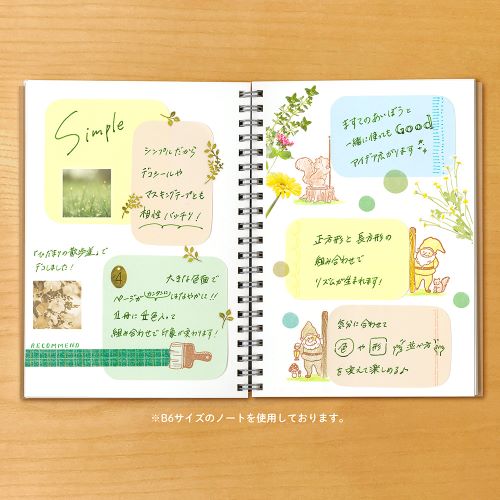 Simple
シンプルだから
デコシールや
マスキングテープとも
相性バッチリ!
『ひだまりの散歩道』で
デコしました!
4
大きな色面で
ページがカンタンにはなやかに!!
1冊に 全色入って
組み合わせで印象が変わります!
RECOMMEND
ますてのあいぼうと
一緒に使っても Good
アイデア広がります
正方形と長方形の
組み合わせで
リズムが生まれます!
気分に合わせて
色や形 並べ方
を変えて楽しめる♪
※B6サイズのノートを使用しております。